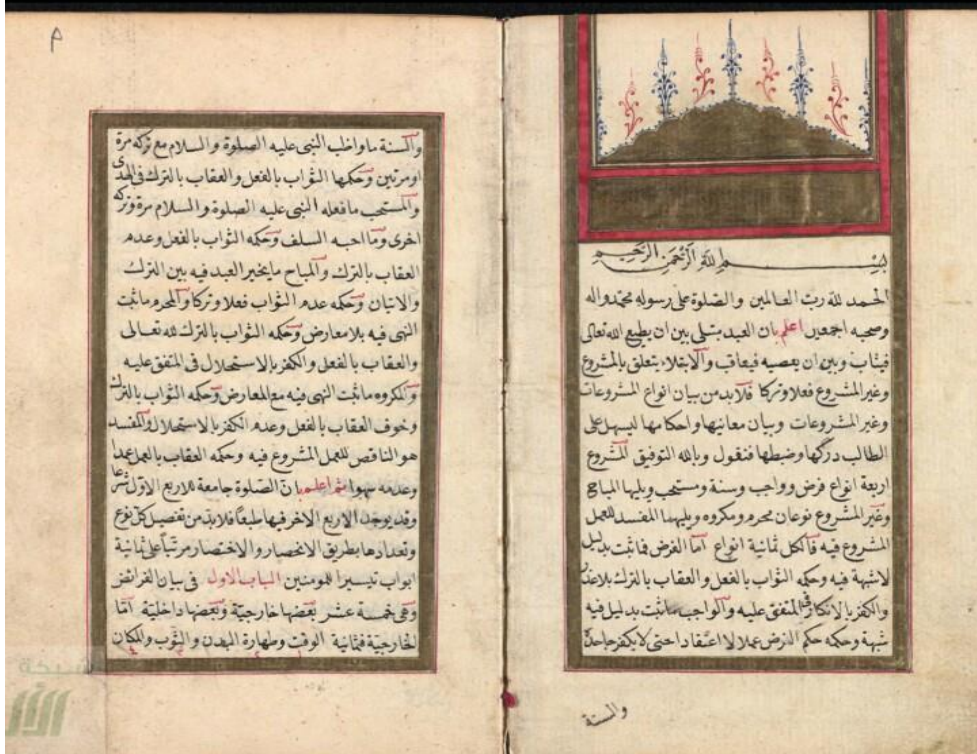 بسم الله الرحمن الرحيم
الحمد لله رب العالمين والصلوة على رسوله محمد واله
وصحبه اجمعين اعلم بان العبد مبتلى بين ان يطيع الله تعالى
فيثاب وبين ان يعصيه فيعاقب والابتلاء يتعلق بالمشروع
وغير المشروع فعلا وتركا فلا بد من بيان انواع المشروعات
وغير المشروعات وبيان معانيها واحكامها ليسهل على
الطالب دركها وضبطها فنقول وبالله التوفيق المشروع
اربعة انواع فرض وواجب وسنة ومستحب ويليها المباح
وغير المشروع نوعان محرم ومكروه ويليهما المفسد للعمل
المشروع فيه فالكل ثمانية انواع اما الفرض فما ثبت بدليل
لا شبهة فيه وحكمه الثواب بالفعل والعقاب بالترك بلا عذر
والكفر بالانكار في المتفق عليه والواجب ما ثبت بدليل فيه
شبهة وحكمه حكم الفرض عملا لا اعتقادا حتى لا يكفر جاحده
والسنة
والسنة ما واظب النبي عليه الصلوة والسلام مع تركه مرة
او مرتين وحكمها الثواب بالفعل والعقاب بالترك في الهدى
والمستحب ما فعله النبي عليه الصلوة والسلام مرة وتركه
اخرى وما احبه السلف وحكمه الثواب بالفعل وعدم
العقاب بالترك والمباح ما يخير العبد فيه بين الترك
والاتيان وحكمه عدم الثواب فعلا وتركا والمحرم ما ثبت
النهى فيه بلا معارض وحكمه الثواب بالترك لله تعالى
والعقاب بالفعل والكفر بالاستحلال في المتفق عليه
والمكروه ما ثبت النهى فيه مع المعارض وحكمه الثواب بالترك
وخوف العقاب بالفعل وعدم الكفر بالاستحلال والمفسد
هو الناقص للعمل المشروع فيه وحكمه العقاب بالعمل عمدا
وعدمه سهوا ثم اعلم بان الصلوة جامعة للاربع الاول شرعا
وقد يوجد الاربع الاخر فيها طبعا فلا بد من تفصيل كل نوع
وتعدادها بطريق الانحصار والاختصار مرتبا على ثمانية
ابواب تيسيرا للمومنين الباب الاول في بيان الفرائض
وهي خمسة عشر بعضها خارجية وبعضها داخلية اما
الخارجية فثمانية الوقت وطهارة البدن والثوب والمكان
شبكة